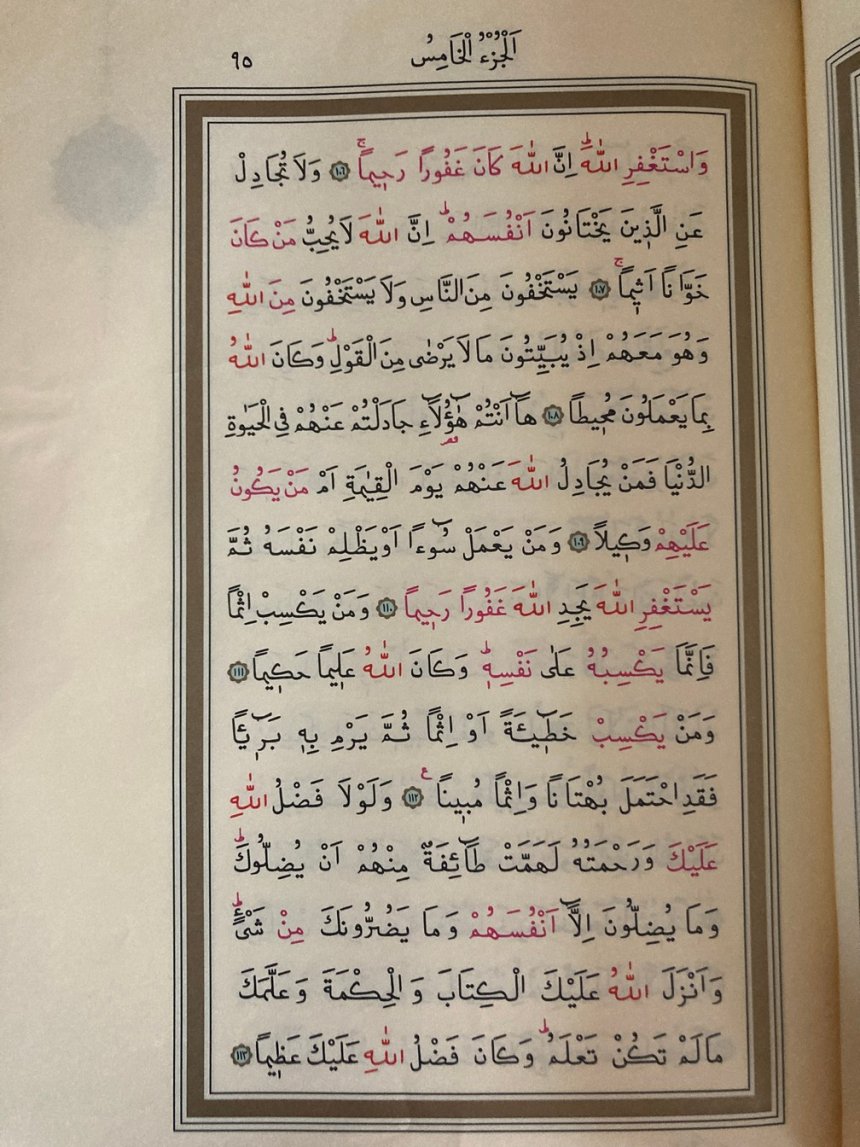 اَلْجُزْءُ الْخَامِسُ
٩٥
وَاسْتَغْفِرِ اللّٰهَۜ اِنَّ اللّٰهَ كَانَ غَفُورًا رَح۪يمًاۚ ﴿١٠٦﴾ وَلَا تُجَادِلْ
عَنِ الَّذ۪ينَ يَخْتَانُونَ اَنْفُسَهُمْۜ اِنَّ اللّٰهَ لَا يُحِبُّ مَنْ كَانَ
خَوَّانًا اَث۪يمًاۚ ﴿١٠٧﴾ يَسْتَخْفُونَ مِنَ النَّاسِ وَلَا يَسْتَخْفُونَ مِنَ اللّٰهِ
وَهُوَ مَعَهُمْ اِذْ يُبَيِّتُونَ مَا لَا يَرْضٰى مِنَ الْقَوْلِۜ وَكَانَ اللّٰهُ
بِمَا يَعْمَلُونَ مُح۪يطًا ﴿١٠٨﴾ هَٓا اَنْتُمْ هٰٓؤُ۬لَٓاءِ جَادَلْتُمْ عَنْهُمْ فِي الْحَيٰوةِ
الدُّنْيَا فَمَنْ يُجَادِلُ اللّٰهَ عَنْهُمْ يَوْمَ الْقِيٰمَةِ اَمْ مَنْ يَكُونُ
عَلَيْهِمْ وَك۪يلًا ﴿١٠٩﴾ وَمَنْ يَعْمَلْ سُٓوءًا اَوْ يَظْلِمْ نَفْسَهُ ثُمَّ
يَسْتَغْفِرِ اللّٰهَ يَجِدِ اللّٰهَ غَفُورًا رَح۪يمًا ﴿١١٠﴾ وَمَنْ يَكْسِبْ اِثْمًا
فَاِنَّمَا يَكْسِبُهُ عَلٰى نَفْسِه۪ۜ وَكَانَ اللّٰهُ عَل۪يمًا حَك۪يمًا ﴿١١١﴾
وَمَنْ يَكْسِبْ خَط۪ٓيـَٔةً اَوْ اِثْمًا ثُمَّ يَرْمِ بِه۪ بَر۪ٓيـًٔا
فَقَدِ احْتَمَلَ بُهْتَانًا وَاِثْمًا مُب۪ينًا۟ ﴿١١٢﴾ وَلَوْلَا فَضْلُ اللّٰهِ
عَلَيْكَ وَرَحْمَتُهُ لَهَمَّتْ طَٓائِفَةٌ مِنْهُمْ اَنْ يُضِلُّوكَۜ
وَمَا يُضِلُّونَ اِلَّٓا اَنْفُسَهُمْ وَمَا يَضُرُّونَكَ مِنْ شَيْءٍۜ
وَاَنْزَلَ اللّٰهُ عَلَيْكَ الْكِتَابَ وَالْحِكْمَةَ وَعَلَّمَكَ
مَا لَمْ تَكُنْ تَعْلَمُۜ وَكَانَ فَضْلُ اللّٰهِ عَلَيْكَ عَظ۪يمًا ﴿١١٣﴾